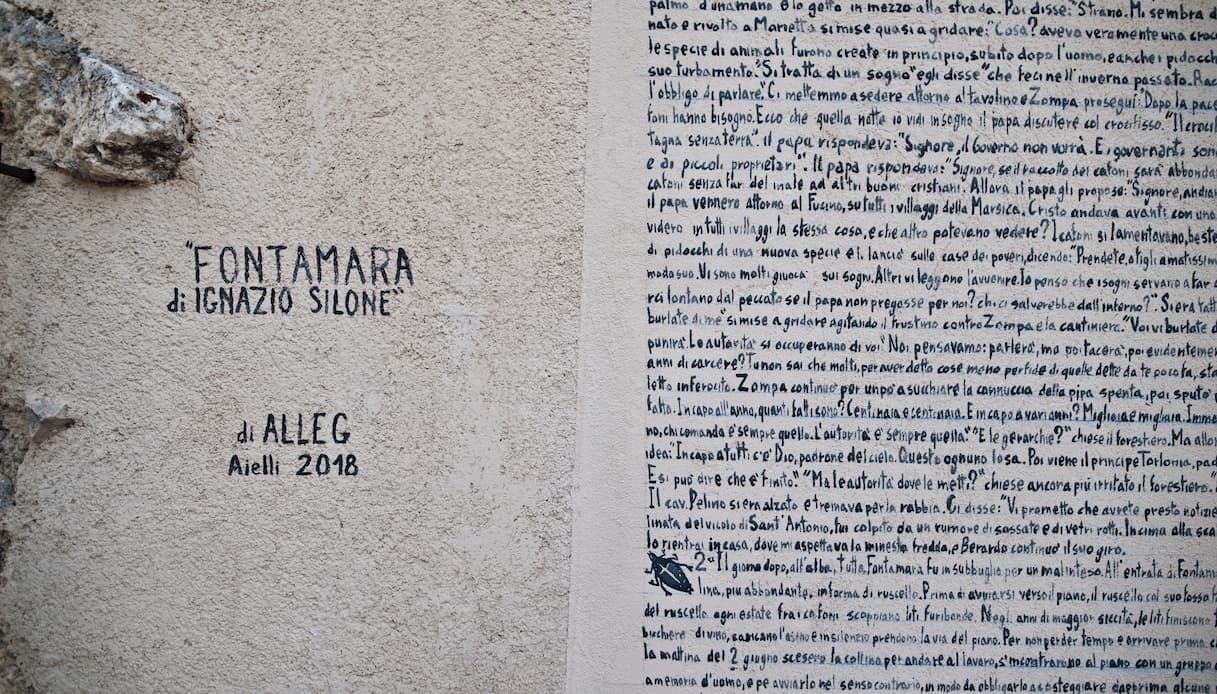 "FONTAMARA
di IGNAZIO SILONE"
di ALLEG
Aielli 2018
palmo d'una mano e lo gettò in mezzo alla strada. Poi disse: "Strano. Mi sembra d
nato e rivolto a Marietta si mise quasi a gridare: "Cosa? aveva veramente una croc
le specie di animali furono create in principio, subito dopo l'uomo, e anche i pidocch
suo turbamento. "Si tratta di un sogno" egli disse "che feci nell'inverno passato. Rac
l'obbligo di parlare". Ci mettemmo a sedere attorno al tavolino e Zompa proseguì: "Dopo la pace
foni hanno bisogno. Ecco che quella notte io vidi in sogno il papa discutere col crocifisso. "Il croci
tagna senza terra". Il papa rispondeva: "Signore, il Governo non vorrà. E i governanti son
e di piccoli proprietari". Il papa rispondeva: "Signore, se il raccolto dei cafoni sarà abbonda
cafoni senza far del male ad altri buoni cristiani. Allora il papa gli propose: "Signore, andia
il papa vennero attorno al Fucino, su tutti i villaggi della Marsica. Cristo andava avanti con una
videro in tutti i villaggi la stessa cosa, e che altro potevano vedere? I cafoni si lamentavano, beste
di pidocchi di una nuova specie e li lanciò sulle case dei poveri, dicendo: "Prendete, o figli amatissim
modo suo. Vi sono molti giuoca sui sogni. Altri vi leggono l'avvenire. Io penso che i sogni servano a far d
rci lontano dal peccato se il papa non pregasse per noi? chi ci salverebbe dall'inferno?". Si era fatt
burlate di me" si mise a gridare agitando il frustino contro Zompa e la cantiniera. "Voi vi burlate d
punirà. Le autorità si occuperanno di voi" Noi pensavamo: parlerà, ma poi tacerà, poi evidentemen
anni di carcere? Tu non sai che molti, per aver detto cose meno perfide di quelle dette da te poco fa, sta
letto inferocito. Zompa continuò per un po' a succhiare la cannuccia della pipa spenta, poi sputò
fatto. In capo all'anno, quanti fatti sono? Centinaia e centinaia. E in capo a vari anni? Migliaia e migliaia. Imma
no, chi comanda è sempre quello. L'autorità è sempre quella". "E le gerarchie?" chiese il forestiero. Ma allor
idea: "In capo a tutti c'è Dio, padrone del cielo. Questo ognuno lo sa. Poi viene il principe Torlonia, pad
E si può dire che è finito". "Ma le autorità dove le metti?" chiese ancora più irritato il forestiero.
Il cav. Pelino si era alzato e tremava per la rabbia. Ci disse: "Vi prometto che avrete presto notizie
linata del vicolo di Sant'Antonio, fui colpito da un rumore di sassate e di vetri rotti. In cima alla sca
Io rientrai in casa, dove mi aspettava la minestra fredda, e Berardo continuò il suo giro.
2 "Il giorno dopo, all'alba, tutta Fontamara fu in subbuglio per un malinteso. All'entrata di Fontam
lina, più abbondante, in forma di ruscello. Prima di avviarsi verso il piano, il ruscello col suo fosso
del ruscello ogni estate fra i cafoni scoppiano liti furibonde. Negli anni di maggior siccità, le liti finiscono
bicchiere di vino, caricano l'asino e in silenzio prendono la via del piano. Per non perder tempo e arrivare prima
la mattina del 2 giugno scesero la collina per andare al lavoro, s'incontrarono al piano con un gruppo
a memoria d'uomo, e per avviarlo nel senso contrario, in modo da obbligarlo a costeggiare dapprima alcune